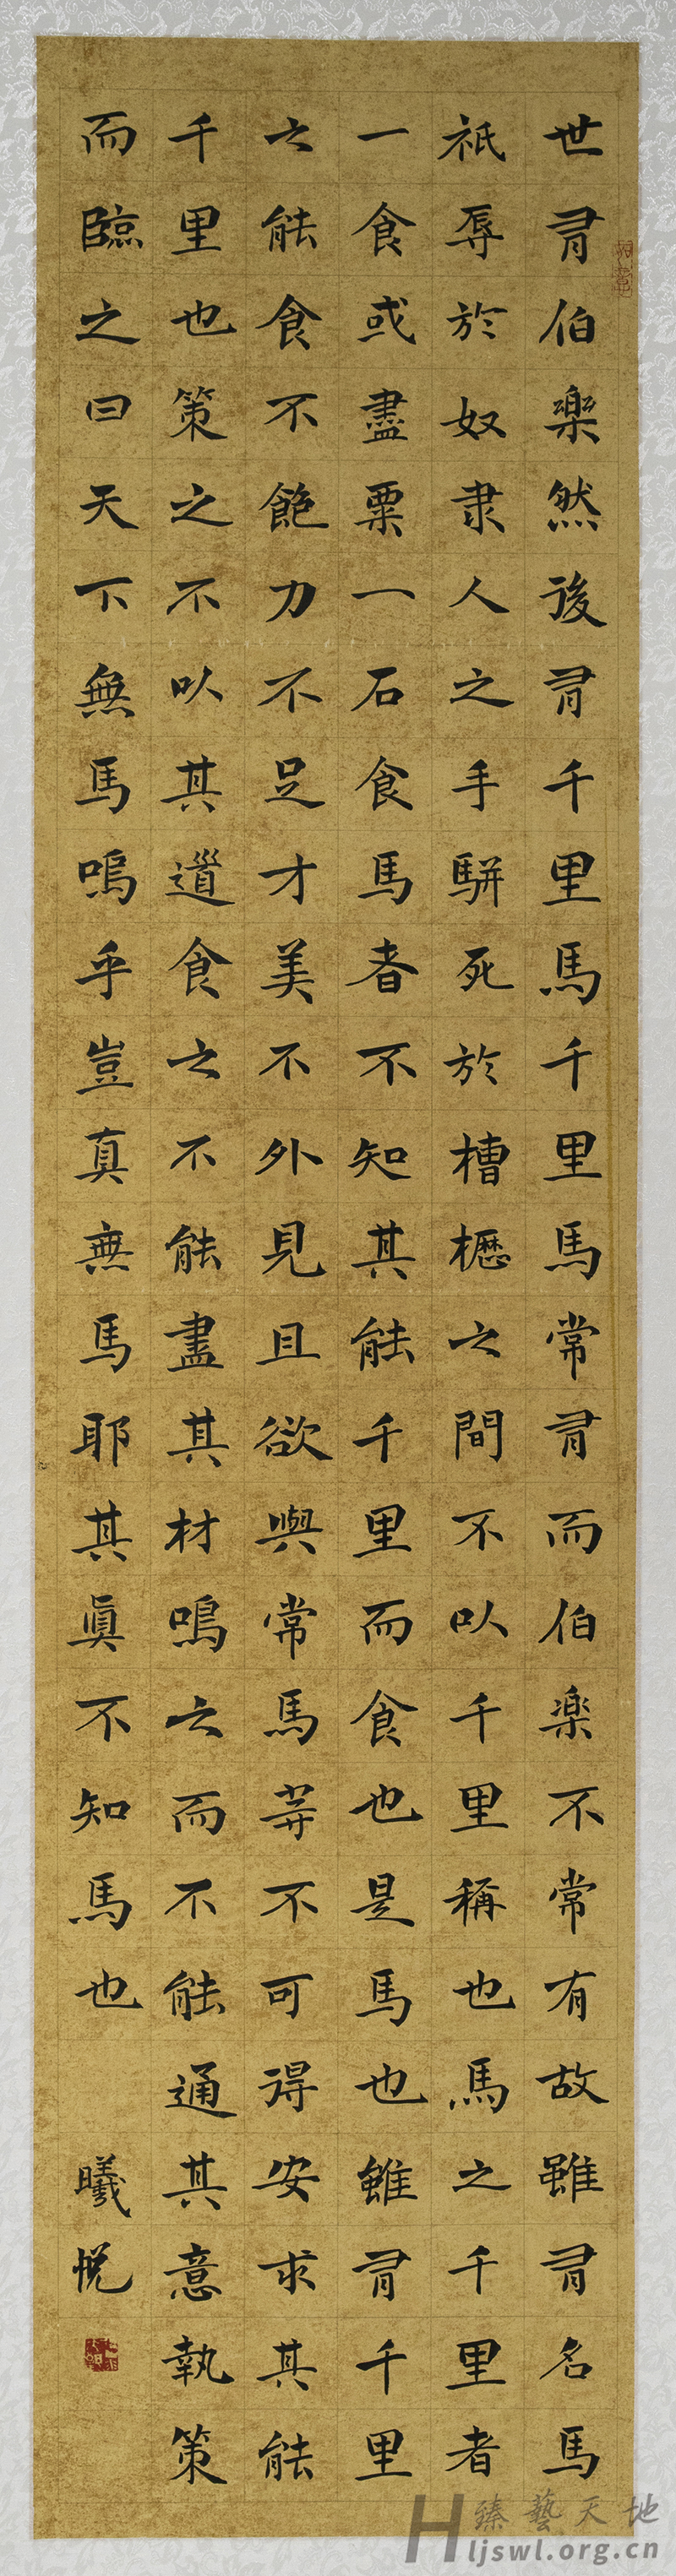 世有伯楽然後有千里馬千里馬常有而伯楽不常有故雖有名馬
祇辱於奴隶人之手駢死於槽櫪之間不以千里稱也馬之千里者
一食或盡粟一石食馬者不知其能千里而食也是馬也雖有千里
之能食不飽力不足才美不外見且欲與常馬等不可得安求其能
千里也策之不以其道食之不能盡其材鳴之而不能通其意執策
而臨之曰天下無馬嗚乎豈真無馬耶其眞不知馬也
曦悦
臻藝天地
Hljswl.org.cn